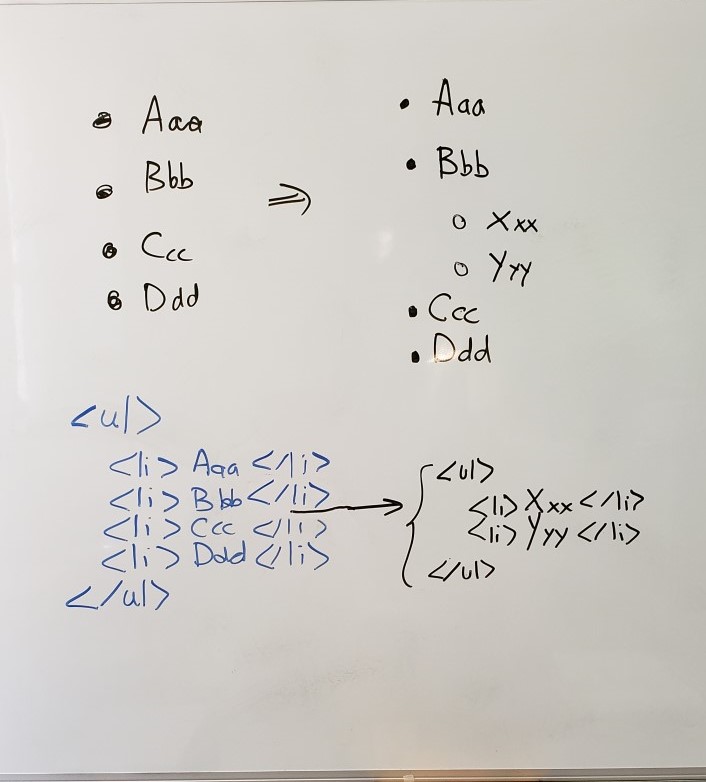 • Aaa
• Bbb
• Ccc
• Ddd
⇒
• Aaa
• Bbb
○ Xxx
○ Yyy
• Ccc
• Ddd
<ul>
<li> Aaa </li>
<li> Bbb </li>
<li> Ccc </li>
<li> Ddd </li>
</ul>
<ul>
<li> Xxx </li>
<li> Yyy </li>
</ul>